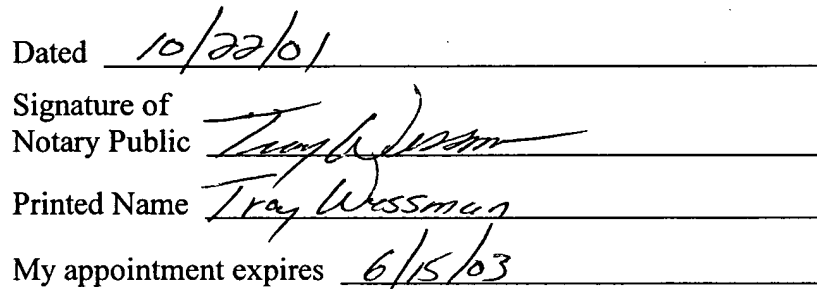 Dated 10/22/01
Signature of
Notary Public Troy Wessman
Printed Name Troy Wessman
My appointment expires 6/15/03